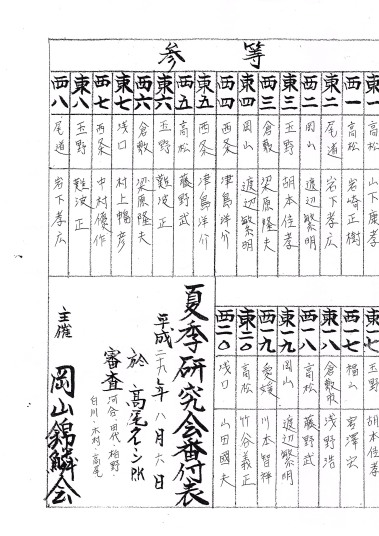 参等
東一 高松 山下康孝
西一 高松 岩崎正樹
東二 尾道 岩下孝広
西二 岡山 渡辺繁明
東三 玉野 胡本佳孝
西三 倉敷 梁原隆夫
東四 岡山 渡邉繁明
西四 西条 津島洋介
東五 西条 津島洋介
西五 高松 藤野武
東六 玉野 難波正
西六 倉敷 梁原隆夫
東七 浅口 村上暢彦
西七 西条 中村優作
東八 玉野 難波正
西八 尾道 岩下孝広
東一七 玉野 胡本佳孝
西一七 福山 宮澤宏
東一八 倉敷市 浅野浩
西一八 高松 藤野武
東一九 岡山 渡辺繁明
西一九 愛媛 川本智祥
東二〇 高松 竹谷義正
西二〇 浅口 山田國夫
夏季研究会番付表
平成二十九年八月六日
於 高尾クイーンPK
審査 河合・田代・柏野・
白川・木村・高尾
主催 岡山錦鱗会